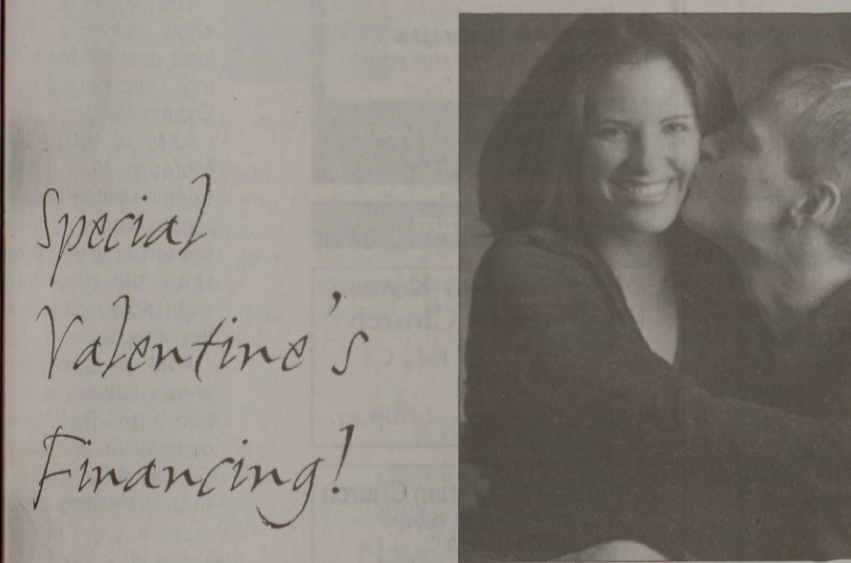 Special
Valentine's
Financing!